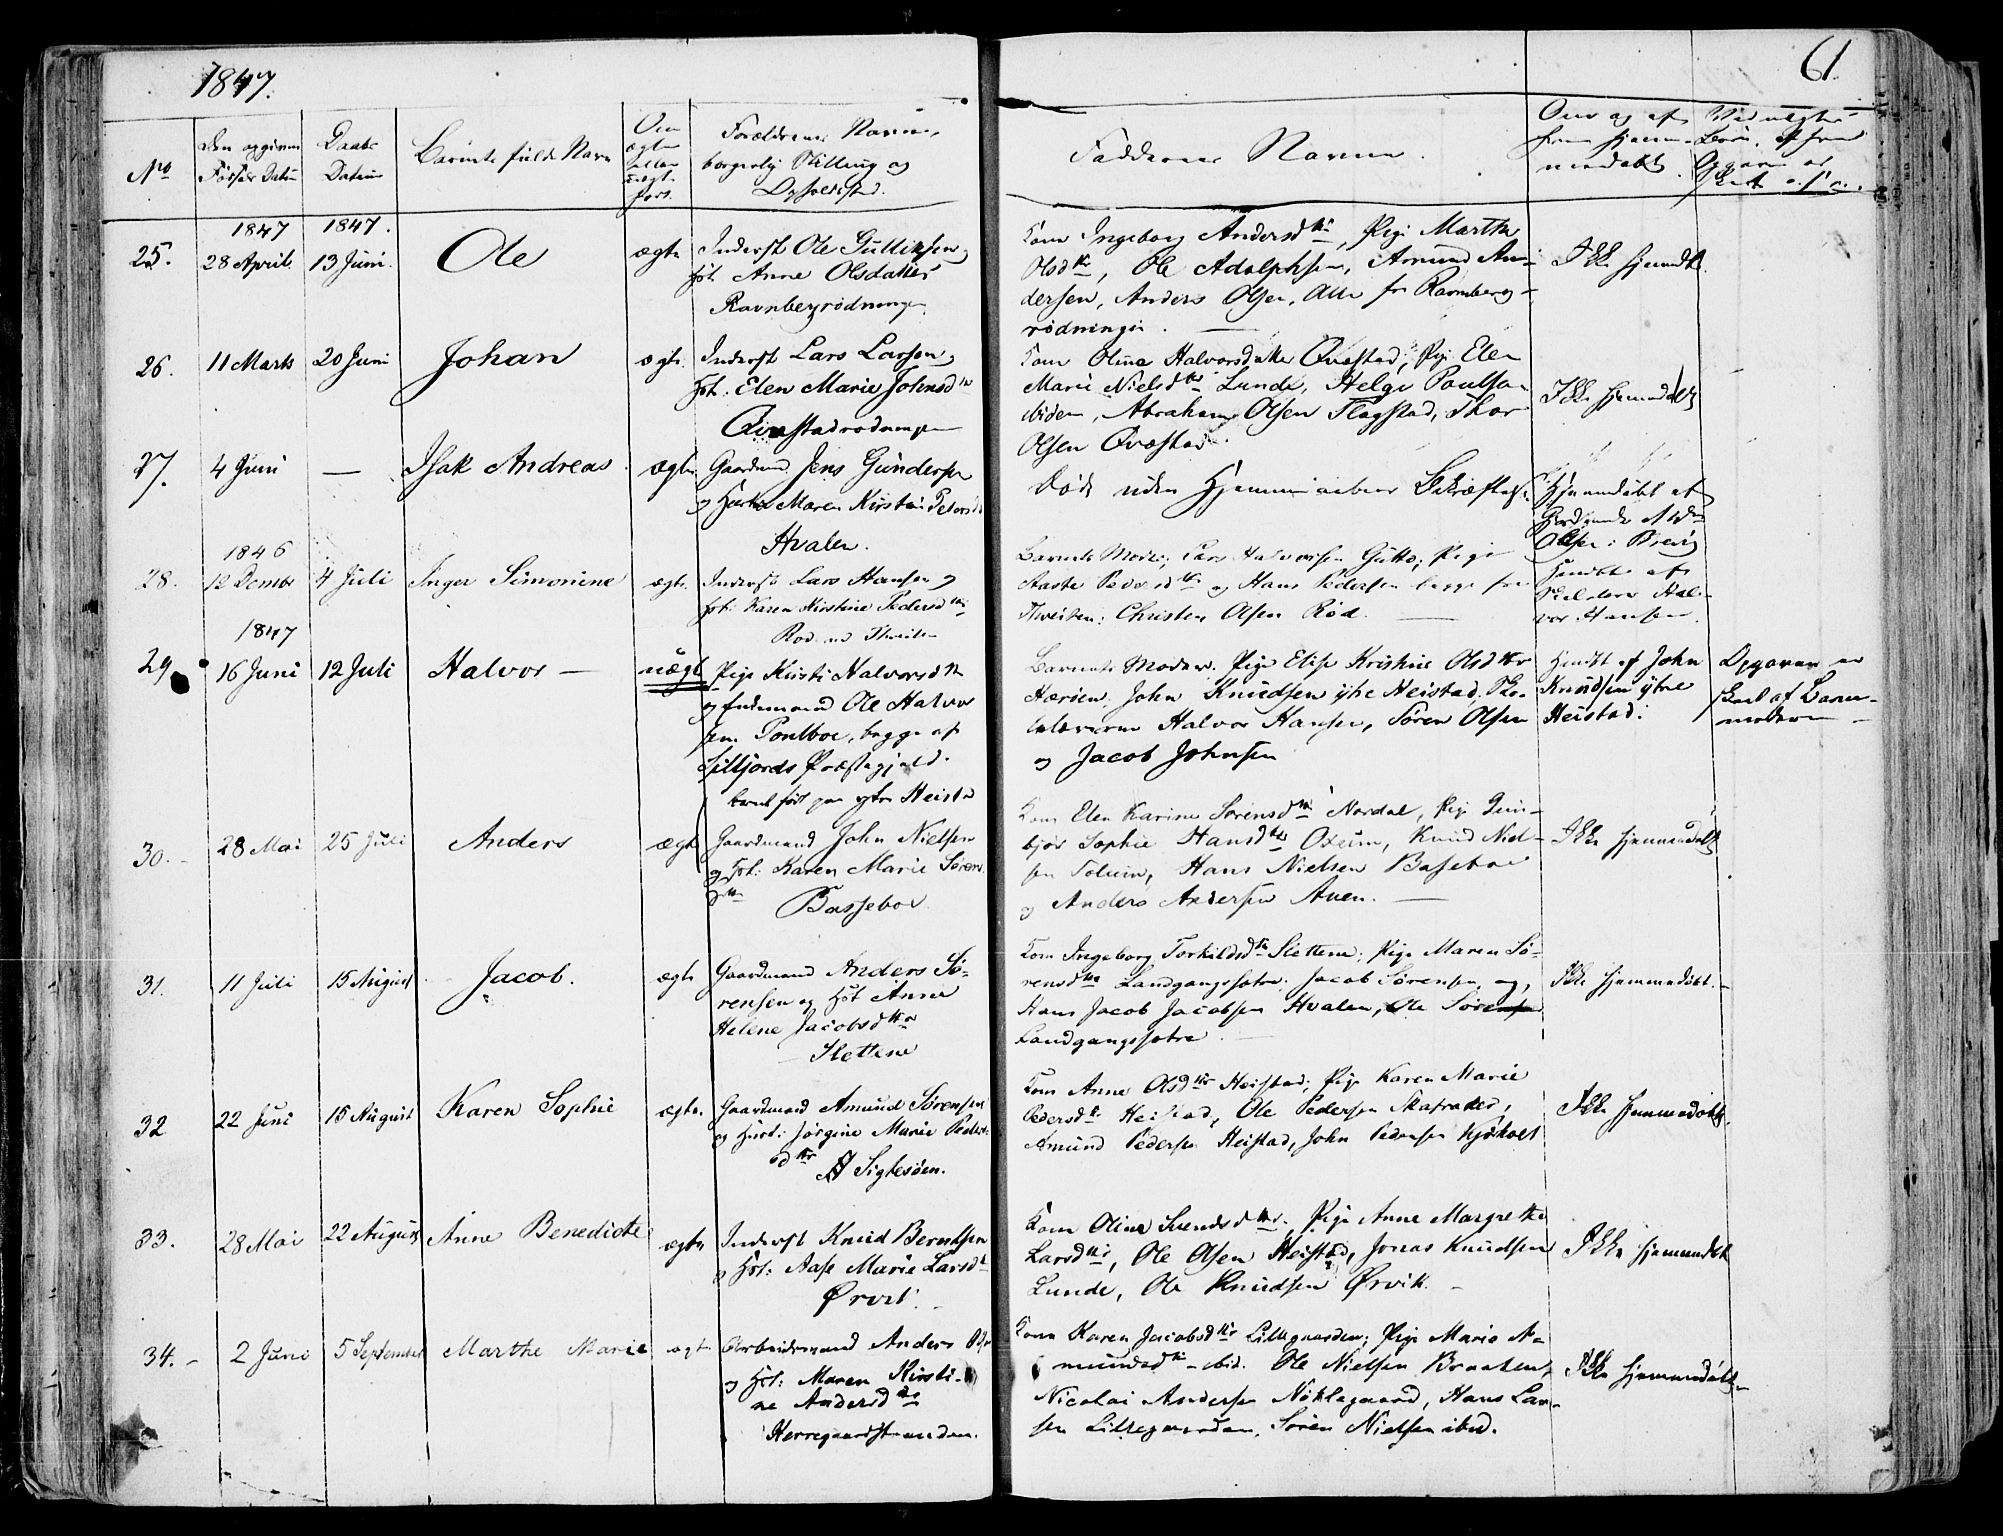 1847.
61.
No
Den opgivne Fødsels Datum
Daabs Datum
Barnets fulde Navn
Om ægte eller uægte født.
Forældrenes Navne, borgerlig Stilling og Opholdssted.
Faddernes Navne.
Om og af hvem hjemmedøbt.
1847 1847.
25. 28 April 13 Juni Ole ægte Inderst Ole Gulliksen
Hst. Anne Olsdatter
Ravnbergrødningen
Kone Ingeborg Andersdtr, Pige Marthe
Olsdtr, Ole Adolphsen, Amund An-
dersen, Anders Olsen, Alle fr Ravnberg-
rødningen.
Ikke hjemmdt.
26. 11 Marts 20 Juni Johan ægte Inderst Lars Larsen
Hst. Elen Marie Johnsdtr
Qvæstadrødningen
Kone Oline Halvorsdatter Qvæstad, Pige Elen
Marie Nielsdtr Lunde, Helge Poulsen
ibidem, Abraham Olsen Flagstad, Thor
Olsen Qvæstad.
Ikke hjemmedøbt
27. 4 Juni — Isak Andreas ægte Gaardmd. Jens Gundersen
og Hustru Maren Kirstine Petersd
Hvalen.
Døde uden Hjemmedaabens Bekræftelse
Hjemmedøbt af
Olsen i Brevig
1846
28. 12 Decmbr 4 Juli Inger Simonine ægte Inderst Lars Hansen og
Hst: Karen Kirstine Pedersdtr
Rød
Barnets Moder; Lars Halvorsen Gutte; Pige
Pedersdtr og Hans Pedersen begge fra
Tveiten; Christen Olsen Rød.
Hal-
vor Hansen.
1847
29. 16 Juni 12 Juli Halvor — uægte Pige Kirsti Halvorsdtr
og Ole Halvor
sen Poulboe, begge af
Silljords Præstegjeld.
Barnet født paa ytre Heistad
Barnets Moder. Pige Elise Kristine Olsdtr
John Knudsen ytre Heistad,
Halvor Hansen, Søren Olsen
og Jacob Johnsen
af John
Knudsen ytre
Heistad.
Opgaven er
skeet af Barne-
moderen —
30. – 28 Mai 25 Juli Anders ægte Gaardmand John Nielsen
og Hst: Karen Marie Sørens
dtr
Basseboe.
Kone Elen Karine Sørensdtr Nordal, Pige Gun-
bjør Sophie Hansdtr Oxum, Knud Niel-
sen, Hans Nielsen Baseboe
og Anders Andersen Auen. —
Ikke hjemmedøbt
31. 11 Juli 15 August Jacob. ægte Gaardmand Anders Sø-
rensen og Hst Anne
Helene Jacobsdtr
Slettene
Kone Ingeborg Torkildsdtr Slettene; Pige Maren Sø-
rensdtr Landgangssotre; Jacob Sørensen, og,
Hans Jacob Jacobsen Hvalen, Ole Sørensen
Landgangssotre.
Ikke hjemmedøbt.
32 22 Juni 15 August Karen Sophie ægte. Gaardmand Amund Sørensen
og Hust: Jørgine Marie Peders-
dtr Siglesøen.
Kone Anne Olsdtr Heistad; Pige Karen Marie
Pedersdtr Heistad, Ole Pedersen Skatraker,
Amund Pedersen Heistad, John Pedersen Kjøholt
Ikke hjemmedøbt.
33. 28 Mai 22 August Anne Benedicte ægte Inderst Knud Berntsen
og Hst: Aase Marie Larsdtr
Ørvik.
Kone Oline Svendsdtr. Pige Anne Margrethe
Larsdtr, Ole Olsen Heistad, Jonas Knudsen
Lunde, Ole Knudsen Ørvik. –
Ikke hjemmedøbt
34. – 2 Juni 5 September Marthe Marie ægte Arbeidsmand Anders Ols
og Hst: Maren Kirsti-
ne Andersdtr
Herregaardstranden.
Kone Karen Jacobsdtr Lillegaarden; Pige Marie A-
mundsdtr ibid. Ole Nielsen Braaten,
Nicolai Andersen Nøklegaard, Hans Lar-
sen Lillegaarden, Søren Nielsen ibid.
Ikke hjemmedøbt